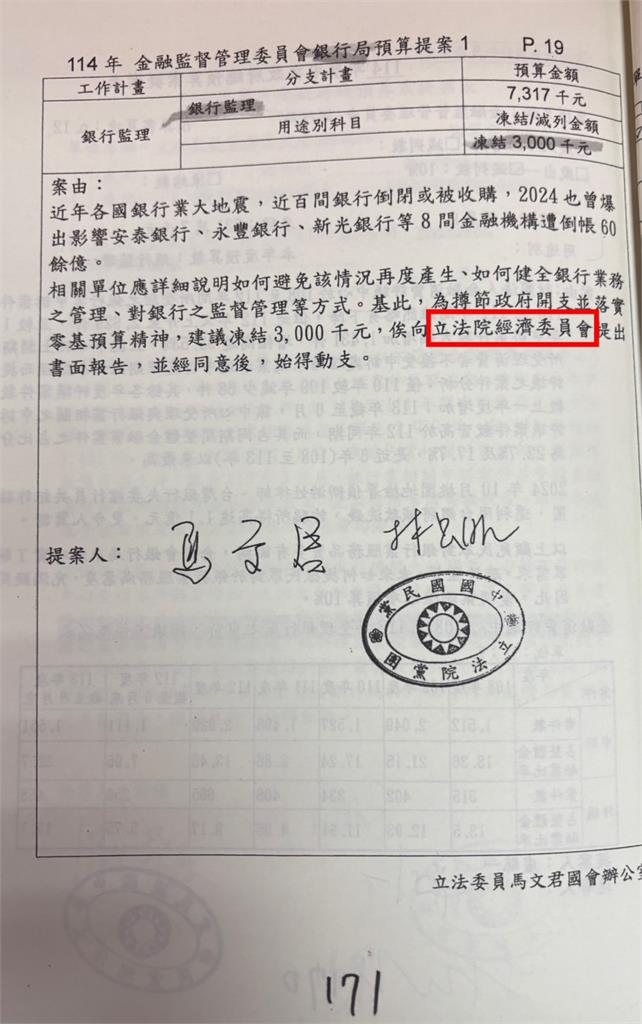 114 年 金融監督管理委員會銀行局預算提案 1 P. 19
工作計畫 分支計畫 預算金額
銀行監理 銀行監理 7,317 千元
用途別科目 凍結/減列金額
凍結 3,000 千元
案由：
近年各國銀行業大地震，近百間銀行倒閉或被收購，2024 也曾爆
出影響安泰銀行、永豐銀行、新光銀行等 8 間金融機構遭倒帳 60
餘億。
相關單位應詳細說明如何避免該情況再度產生、如何健全銀行業務
之管理、對銀行之監督管理等方式。基此，為撙節政府開支並落實
零基預算精神，建議凍結 3,000 千元，俟向立法院經濟委員會提出
書面報告，並經同意後，始得動支。
提案人： 馬文君
中國國民黨
立法院黨團
立法委員馬文君國會辦公室
171